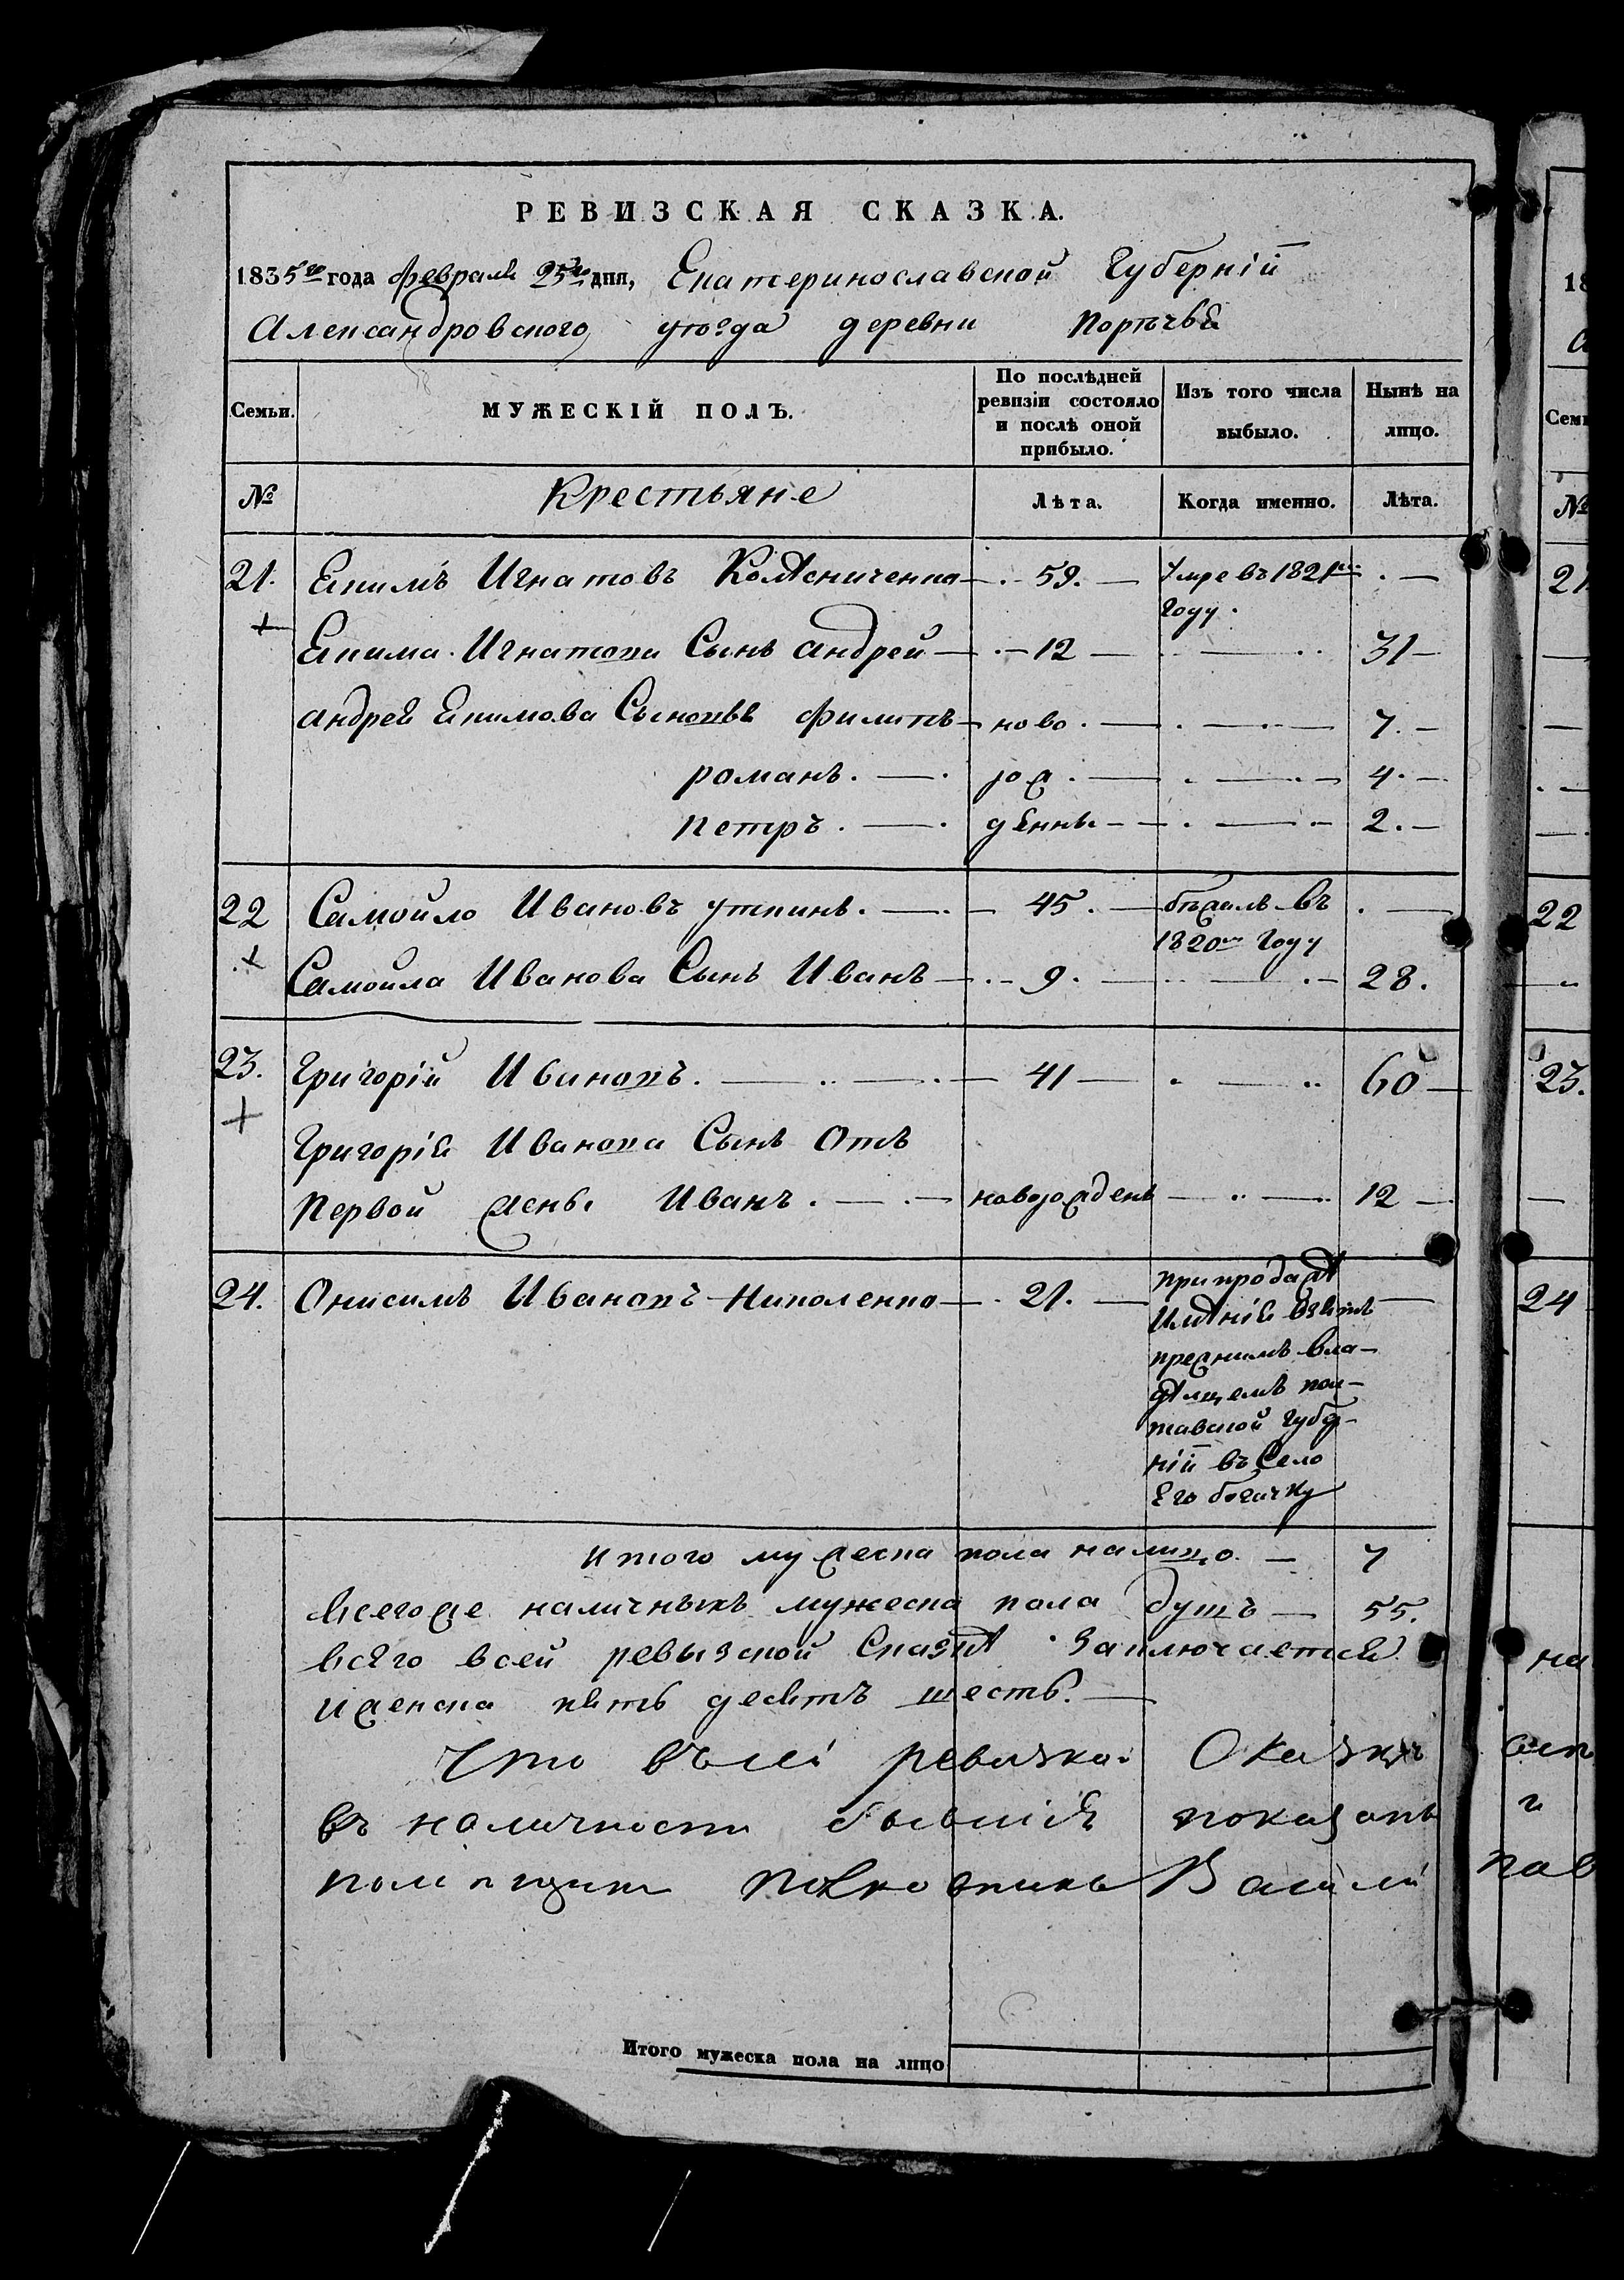 РЕВИЗСКАЯ СКАЗКА.
1835го года февраля 25го дня, Екатеринославской Губерніи
Александровского уѣзда деревни Порѣчья
Семьи.
МУЖЕСКІЙ ПОЛЪ.
По послѣдней ревизіи состояло и послѣ оной прибыло.
Изъ того числа выбыло.
Нынѣ на лицо.
№ Крестьяне Лѣта. Когда именно. Лѣта.
21. Екимъ Игнатовъ Колѣсниченко 59. Умре въ 1821м
году.
Екима Игнатова Сынъ андрей 12 31
андрея Екимова Сыновья филипъ ново 7.
романъ. рож 4.
петръ. денны 2.
22 Самойло Ивановъ уткинъ. 45. бѣжалъ въ
1820м году
Самойла Иванова Сынъ Иванъ 9. 28.
23. Григорій Ивановъ. 41 60
Григорія Иванова Сынъ Отъ
Первой жены Иванъ. новорожденъ 12
24. Онисимъ Ивановъ Николенко 21. при продажѣ
Имѣнія взятъ
прежнимъ вла-
дѣлцемъ пол-
тавской губер-
ніи въ Село
Его богачку
итого мужеска пола налицо. 7
Всегоже наличныхъ мужеска пола душъ 55.
всего всей ревызской Сказкѣ Заключается
иженска пять десятъ шесть.
Что въсеі ревизкоі Сказкѣ
въ наличности бывшія показанъ
Василій
Итого мужеска пола на лицо
18
Семь
№
21
22
23.
24